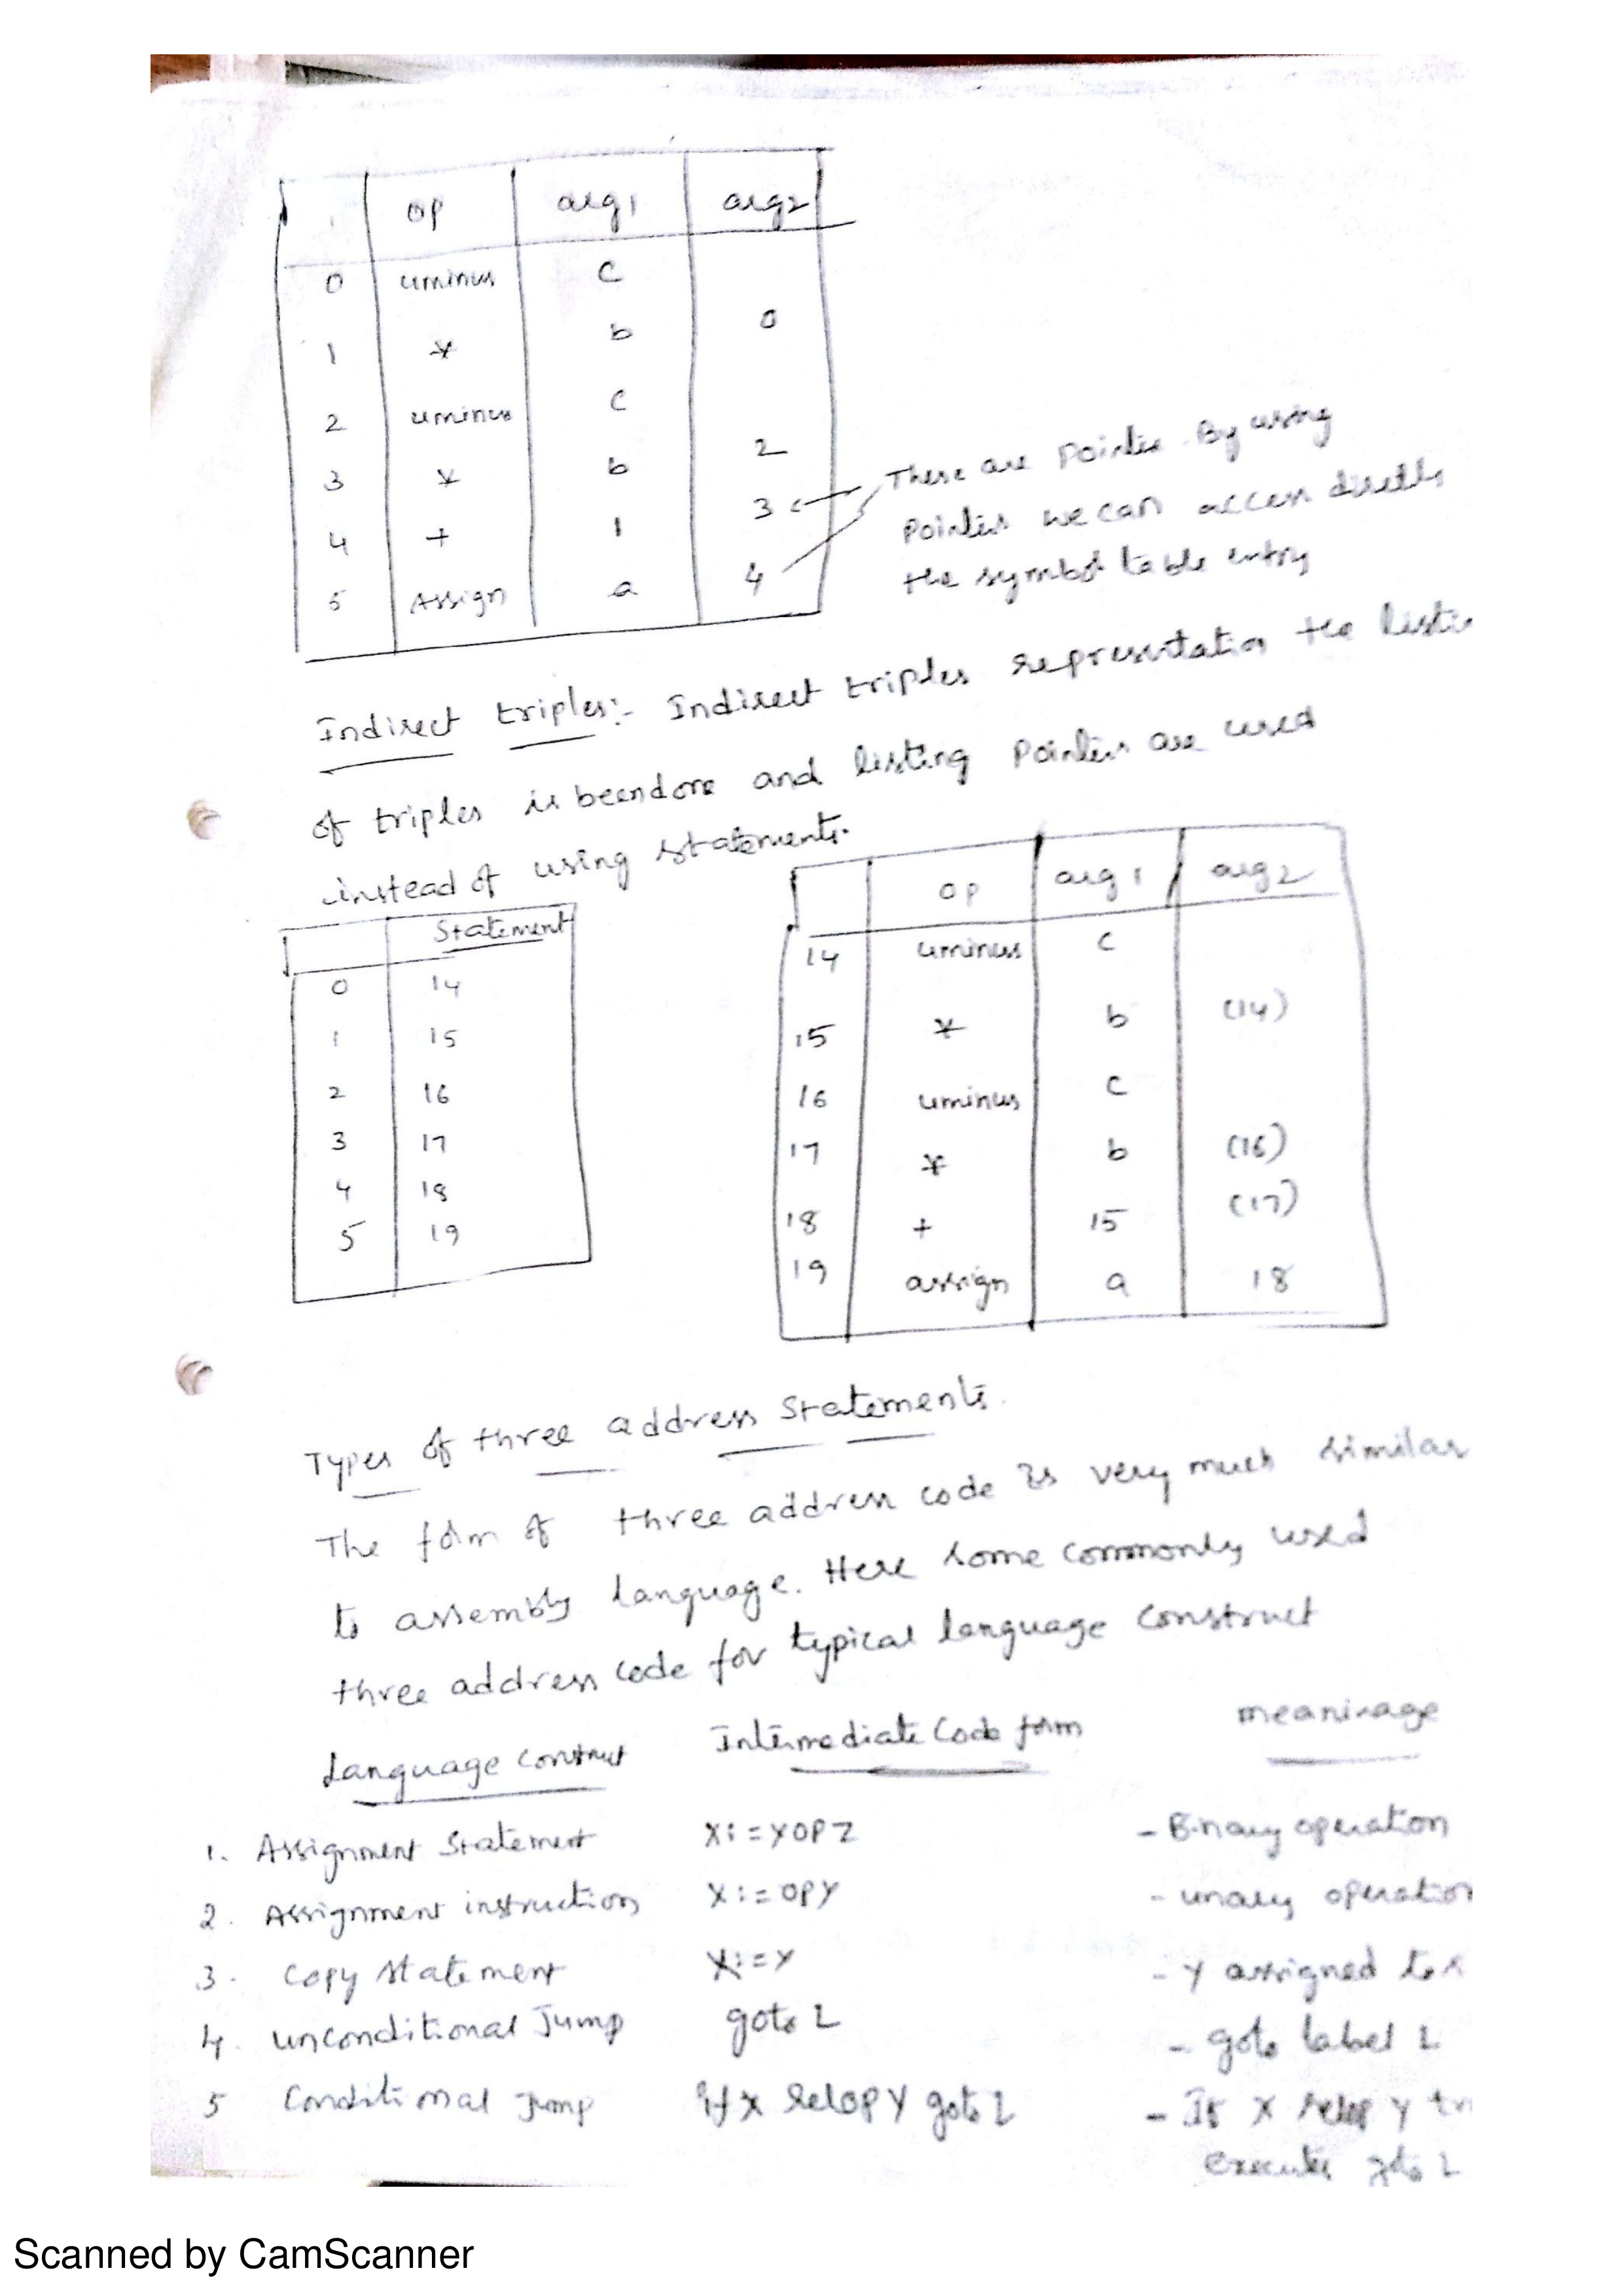 op arg1 arg2
0 uminus c
1 * b 0
2 uminus c
3 * b 2
4 + 1 3
5 Assign a 4
These are Pointer. By using
Pointer we can access directly
the symbol table entry
Indirect triples:- Indirect triples representation the
of triples is beendone and listing Pointers are used
instead of using statements.
Statement
0 14
1 15
2 16
3 17
4 18
5 19
op arg1 arg2
14 uminus c
15 * b (14)
16 uminus c
17 * b (16)
18 + 15 (17)
19 assign a 18
Types of three address Statements.
The form of three address code is very much similar
to assembly language. Here some commonly used
three address code for typical language construct
Language construct Intermediate Code form meaninage
1. Assignment Statement X:=YOPZ - Binary operation
2. Assignment instruction X:=OPY - unary operation
3. Copy statement X:=Y - Y assigned to
4. unconditional Jump goto L - goto label L
5 Conditional Jump if x relop y goto L - If X relop y
execute goto L
Scanned by CamScanner